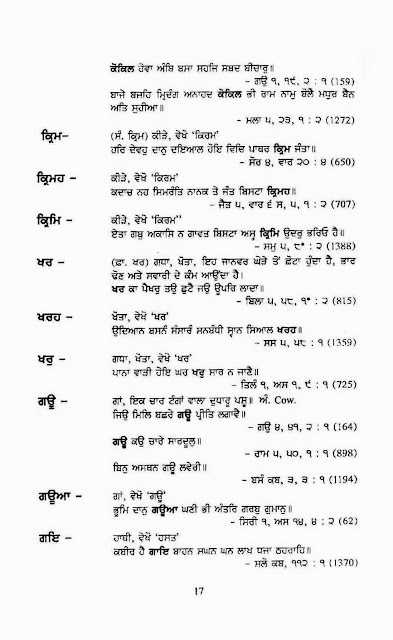 ਕੋਕਿਲ ਹੋਵਾ ਅੰਬਿ ਬਸਾ ਸਹਜਿ ਸਬਦ ਬੀਚਾਰੁ॥
- ਗਉ ੧, ੧੯, ੨ : ੧ (159)
ਬਾਜੇ ਬਜਹਿ ਮ੍ਰਿਦੰਗ ਅਨਾਹਦ ਕੋਕਿਲ ਭੀ ਰਾਮ ਨਾਮੁ ਬੋਲੈ ਮਧੁਰ ਬੈਨ
ਅਤਿ ਸੁਹੀਆ॥
- ਮਲਾ ੫, ੨੩, ੧ : ੨ (1272)
ਕ੍ਰਿਮ– (ਸੰ. ਕ੍ਰਿਮ) ਕੀੜੇ, ਵੇਖੋ 'ਕਿਰਮ'
ਹਰਿ ਦੇਵਹੁ ਦਾਨੁ ਦਇਆਲ ਹੋਇ ਵਿਚਿ ਪਾਥਰ ਕ੍ਰਿਮ ਜੰਤਾ॥
- ਸੋਰ ੪, ਵਾਰ ੨੦ : ੪ (650)
ਕ੍ਰਿਮਹ – ਕੀੜੇ, ਵੇਖੋ 'ਕਿਰਮ'
ਕਦਾਚ ਨਹ ਸਿਮਰੰਤਿ ਨਾਨਕ ਤੇ ਜੰਤ ਬਿਸਟਾ ਕ੍ਰਿਮਹ॥
- ਜੈਤ ੫, ਵਾਰ ੬ ਸ, ੫, ੧ : ੨ (707)
ਕ੍ਰਿਮਿ – ਕੀੜੇ, ਵੇਖੋ 'ਕਿਰਮ''
ਏਤਾ ਗਬੁ ਅਕਾਸਿ ਨ ਗਾਵਤ ਬਿਸਟਾ ਅਸ੍ਤ ਕ੍ਰਿਮਿ ਉਦਰੁ ਭਰਿਓ ਹੈ॥
- ਸਮੁ ੫, ੮* : ੨ (1388)
ਖਰ – (ਫ਼ਾ. ਖ਼ਰ) ਗਧਾ, ਖੋਤਾ, ਇਹ ਜਾਨਵਰ ਘੋੜੇ ਤੋਂ ਛੋਟਾ ਹੁੰਦਾ ਹੈ, ਭਾਰ
ਢੋਣ ਅਤੇ ਸਵਾਰੀ ਦੇ ਕੰਮ ਆਉਂਦਾ ਹੈ।
ਖਰ ਕਾ ਪੈਖਰੁ ਤਉ ਛੁਟੈ ਜਉ ਊਪਰਿ ਲਾਦਾ॥
- ਬਿਲਾ ੫, ੫੮, ੧* : ੨ (815)
ਖਰਹ – ਖੋਤਾ, ਵੇਖੋ 'ਖਰ'
ਉਦਿਆਨ ਬਸਨੰ ਸੰਸਾਰੰ ਸਨਬੰਧੀ ਸ੍ਵਾਨ ਸਿਆਲ ਖਰਹ॥
- ਸਸ ੫, ੫੮ : ੧ (1359)
ਖਰੁ – ਗਧਾ, ਖੋਤਾ, ਵੇਖੋ 'ਖਰ'
ਪਾਨਾ ਵਾੜੀ ਹੋਇ ਘਰ ਖਰੁ ਸਾਰ ਨ ਜਾਣੈ॥
- ਤਿਲੰ ੧, ਅਸ ੧, ੯ : ੧ (725)
ਗਊ – ਗਾਂ, ਇਕ ਚਾਰ ਟੰਗਾਂ ਵਾਲਾ ਦੁਧਾਰੂ ਪਸ਼ੂ॥ ਅੰ. Cow.
ਜਿਉ ਮਿਲਿ ਬਛਰੇ ਗਊ ਪ੍ਰੀਤਿ ਲਗਾਵੈ॥
- ਗਉ ੪, ੪੧, ੨ : ੧ (164)
ਗਊ ਕਉ ਚਾਰੇ ਸਾਰਦੂਲੁ॥
- ਰਾਮ ੫, ੫੦, ੧ : ੧ (898)
ਬਿਨੁ ਅਸਥਨ ਗਊ ਲਵੇਰੀ॥
- ਬਸੰ ਕਬ, ੩, ੩ : ੧ (1194)
ਗਊਆ – ਗਾਂ, ਵੇਖੋ 'ਗਊ'
ਭੂਮਿ ਦਾਨੁ ਗਊਆ ਘਣੀ ਭੀ ਅੰਤਰਿ ਗਰਬੁ ਗੁਮਾਨੁ॥
- ਸਿਰੀ ੧, ਅਸ ੧੪, ੪ : ੨ (62)
ਗਇ – ਹਾਥੀ, ਵੇਖੋ 'ਹਸਤ'
ਕਬੀਰ ਹੈ ਗਾਇ ਬਾਹਨ ਸਘਨ ਘਨ ਲਾਖ ਧਜਾ ਫਹਰਾਹਿ॥
- ਸਲੋ ਕਬ, ੧੧੨ : ੧ (1370)
17